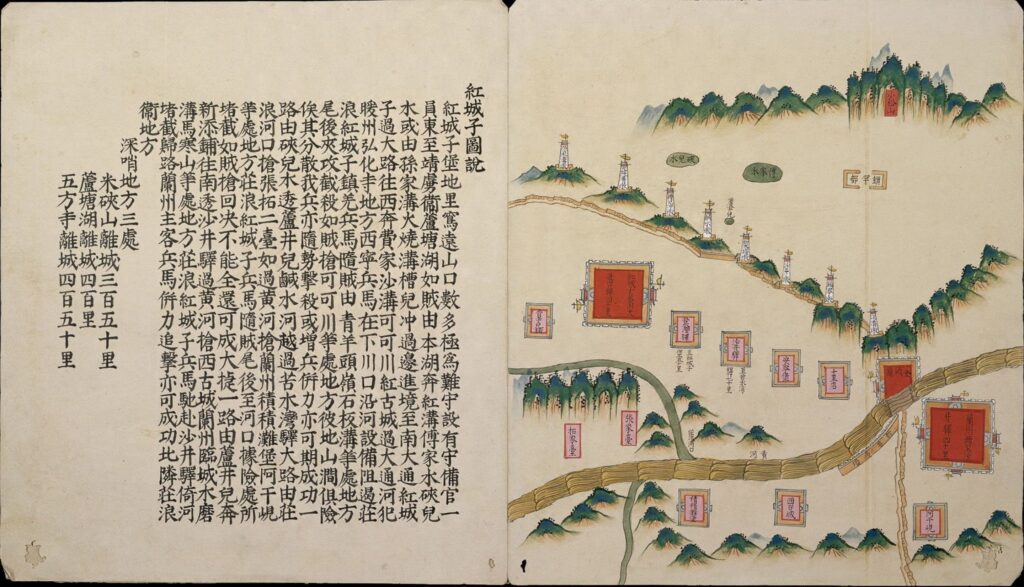 紅城子圖說
紅城子堡地里寫遠山口數多極為難守設有守備官一
員東至靖虜衛蘆塘湖如賊由本湖奔紅溝傅家水硤兒
水或由孫家溝火燒溝槽兒冲過邊進境至南大通紅城
子過大路往西奔費家沙溝可可川紅古城過大通河犯
暖州弘化寺地方西寧兵馬在下川口沿河設備阻遏莊
浪紅城子鎮羌兵馬隨賊由青羊頭嶺石板溝等處地方
尾後夾攻截殺如賊搶可可川等處地方彼地山澗俱險
俟其分散我兵亦隨勢擊殺或增兵併力亦可期成功一
路由硤兒木透蘆井兒鹹水河越過苦水灣驛大路由莊
浪河口搶張拓二臺如過黃河搶蘭州積積灘堡阿干堄
等處地方莊浪紅城子兵馬隨賊尾後至河口據險處所
堵截如賊搶回決不能全還可成大㨗一路由蘆井兒奔
新添鋪往南透沙井驛過黃河搶西古城蘭州臨城水磨
溝馬寒山等處地方莊浪紅城子兵馬馳赴沙井驛倚河
堵截歸路蘭州主客兵馬併力追擊亦可成功北隣莊浪
衛地方
深哨地方三處
米硤山離城三百五十里
蘆塘湖離城四百里
五方寺離城四百五十里
傅家水
硤兒水
沙井驛
張家臺
拓家臺
黃河
西古城
阿干堄